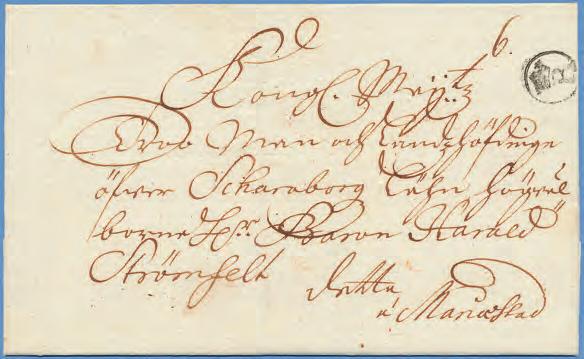 6.
Kongl. Maijtz
Tro Man och Landzhöfdinge
öfwer Scharaborg Lähn Högwäl
borne Hr. Baron Harald
Strömfelt
detta
á Mariæstad